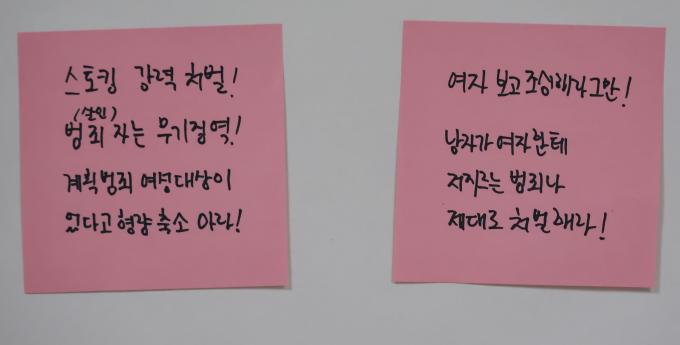 스토킹 강력 처벌!
(살인)
범죄 자는 무기징역!
계획범죄 여성대상이
었다고 형량 축소 마라!
여자 보고 조심해라 그만!
남자가 여자한테
저지르는 범죄나
제대로 처벌해라!